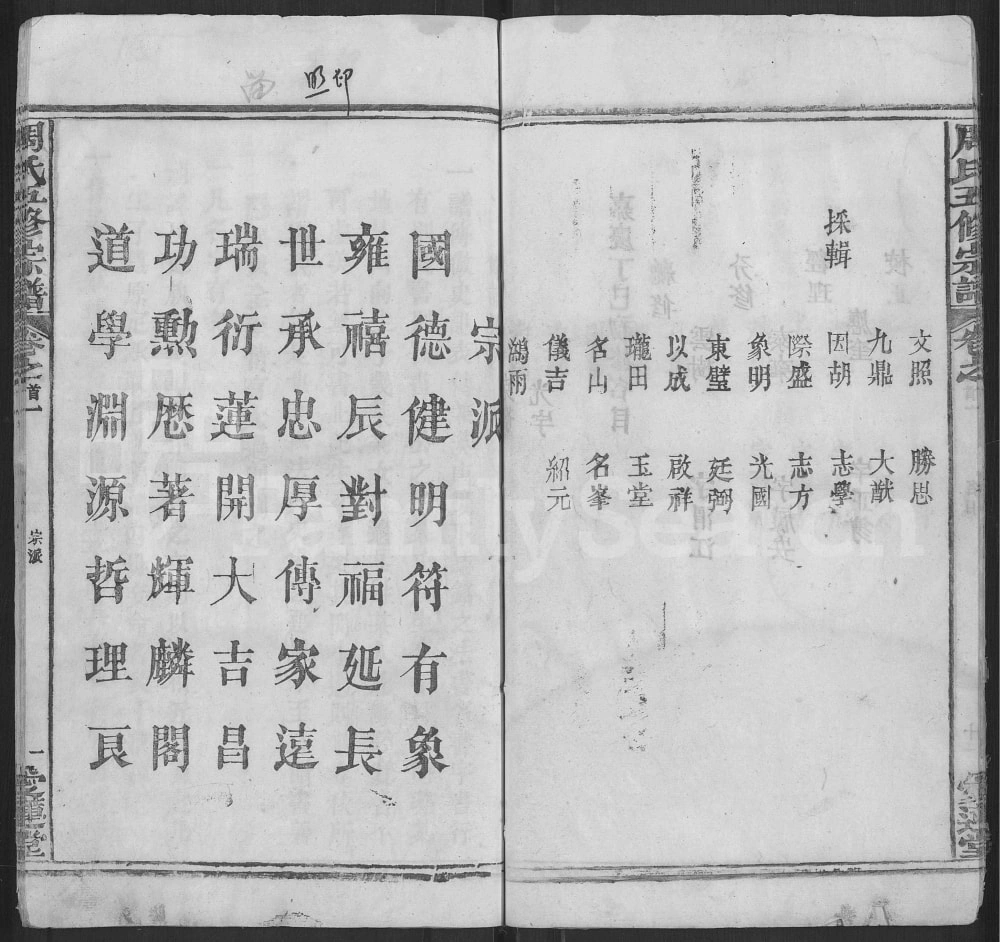 周氏五修宗譜
卷之首
採輯
文照 勝思
九鼎 大猷
因胡 志學
際盛 志方
象明 光國
東璧 廷弼
以成 啟祥
瓏田 玉堂
名山 名峯
儀吉 紹元
鴻雨
宗派
國德健明符有象
雍禧辰對福延長
世承忠厚傳家遠
瑞衍蓮開大吉昌
功勳厯著輝麟閣
道學淵源哲理良
周氏五修宗譜
卷之首一
宗派
一
愛蓮堂
familysearch